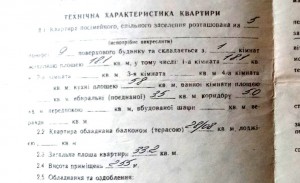 ТЕХНІЧНА ХАРАКТЕРИСТИКА КВАРТИРИ
Квартира посімейного, спільного заселення розташована на 5
(непотрібне закреслити)
9 поверхового будинку та складається з 1 кімнат
площею 181 кв. м, у тому числі: 1-а кімната 181 кв.
кв. м 3-я кімната кв. м 4-а кімната
кв. м кухні площею 58 кв. м, ванної кімнати площею
кв. м вбиральні (поєднаної) 35 кв. м, коридору 50
кв. м, вбудованої шафи кв. м
2.2 Квартира обладнана балконом (терасою) кв. м,
2.3 Загальна площа квартири 332 кв. м
2.4 Висота приміщень 255 м.
2.5 Обладнання та оздоблення: